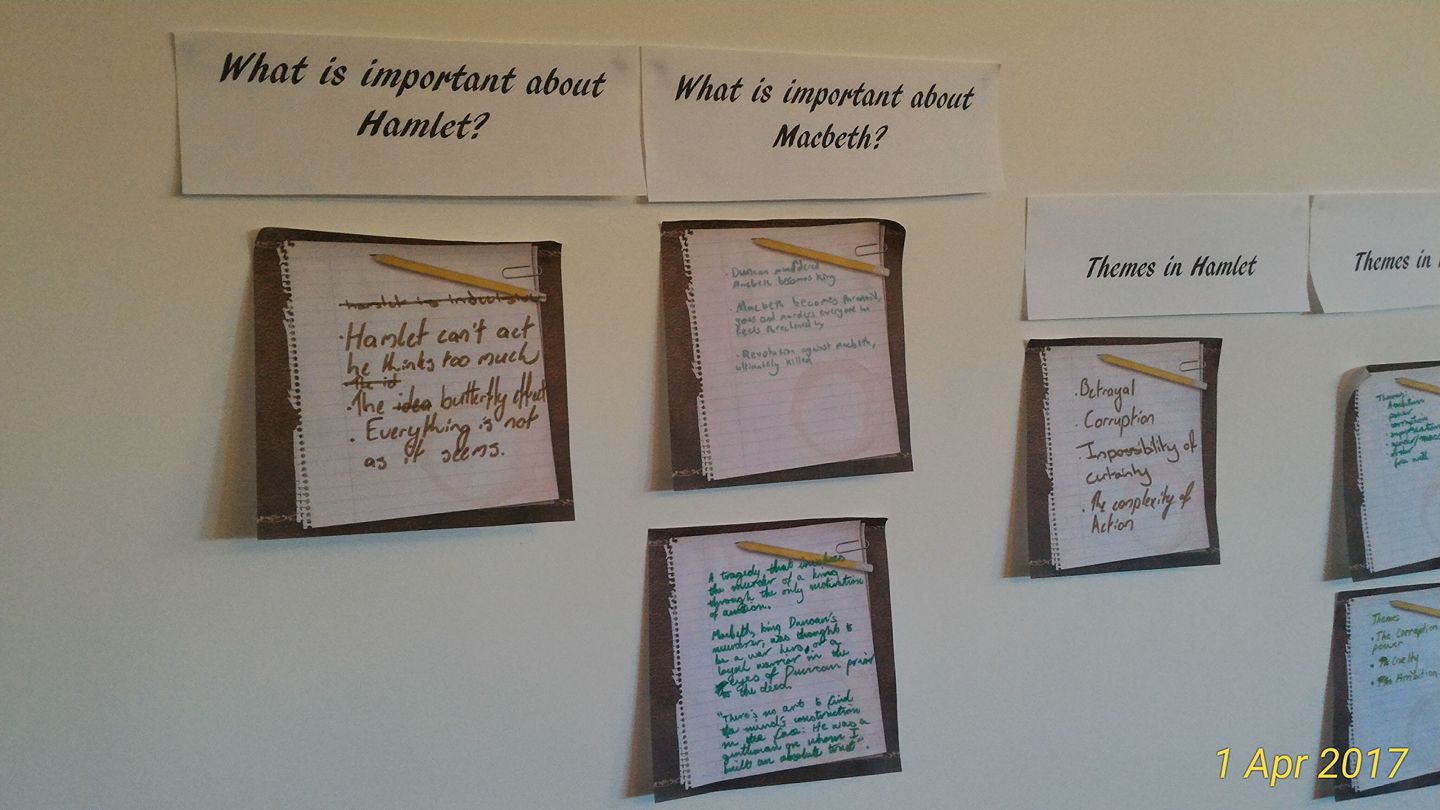 What is important about
Hamlet?
What is important about
Macbeth?
Themes in Hamlet
Themes in
·Hamlet can't act
he thinks too much
·The idea butterfly effect
· Everything is not
as it seems.
· Duncan murdered
Macbeth becomes king
· Macbeth becomes paranoid,
goes and murders everyone he
feels threatened by
· Revolution against Macbeth,
ultimately killed
A tragedy, that involves
the murder of a king
through the only motivation
of
Macbeth, king Duncan's
murderer, was thought to
be a war hero, or a
loyal warrior in the
eyes of Duncan prior
to the deed.
"There's no art to find
the mind's construction
in the face: He was a
gentleman on whom I
built an absolute trust".
· Betrayal
· Corruption
· Impossibility of
certainty
· The complexity of
Action
Themes:
Ambition
power
corruption
free will
Themes
· The Corruption
power
· Cruelty
· Ambition
1 Apr 2017